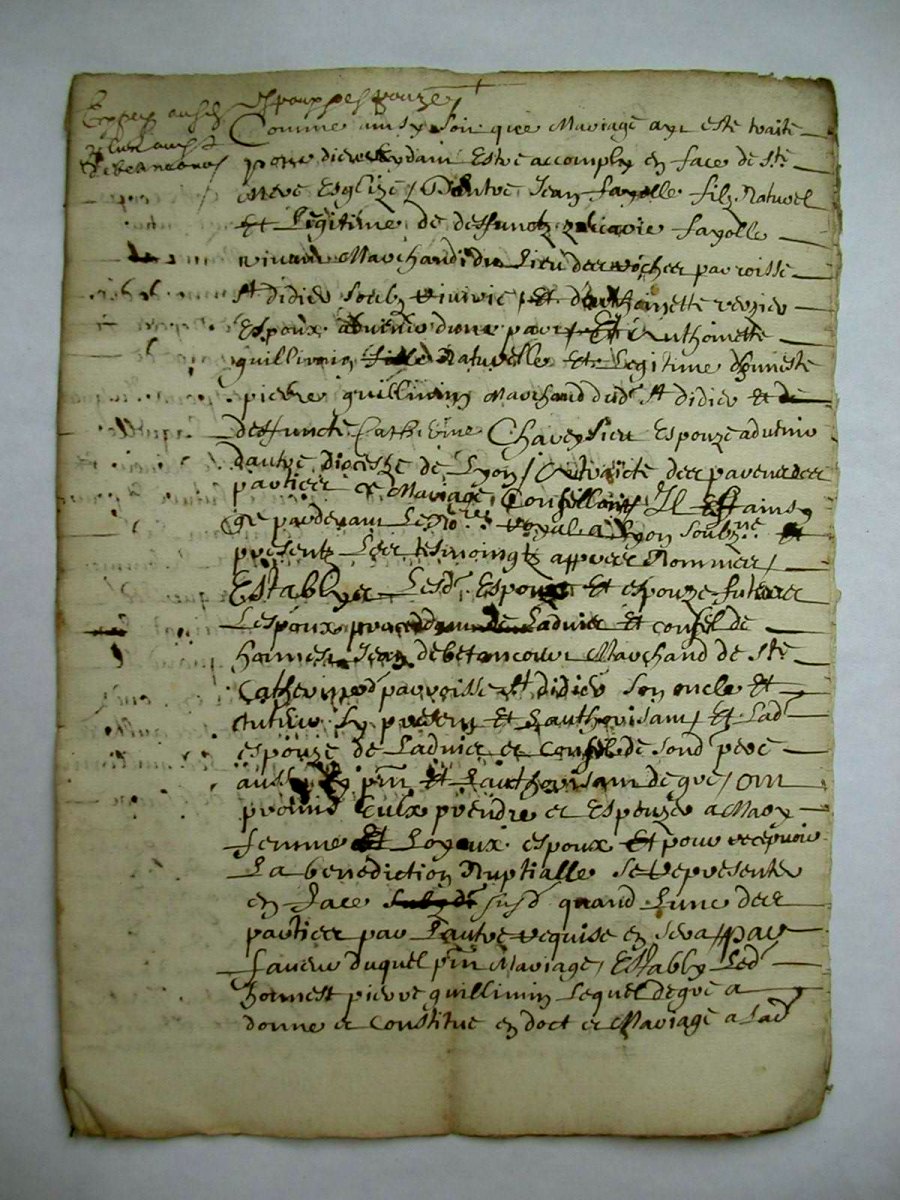 Comme ainsy soit que Mariage aye este traite
pour dieu aydant Estre accomply en face de ste
mere Esglize / Dentre Jean fayolle filz Naturel
Et Legitime de deffunctz fayolle
vivant Marchand du Lieu des rochee parroisse
St didier soubz riviric Et d'anthoinette verzier
Espoux advenir dune part Et Anthoinette
guillimin fille Naturelle Et Legitime d'honneste
pierre guillimin Marchand dud St didier et de
deffuncte Catherine Espouze advenir
dautre diocesze de Lyon / Au traicte des
parties Mariage Il Est ainsy
que pardevant Le No.re royal a Lyon soubz.ne Et
presentz Les tesmoingtz appres Nommes /
Establyes Lesd Espoux Et espouze futures
Lespoux procedant de Ladvice et conseil de
honneste Jean debetancour Marchand de ste
Catherine parroisse St didier son oncle et
present Et Lauthorisant Et Lad
espouze de Ladvice et conseil de sond pere
aussy pnt Et Lauthorisant de gre / ont
promis Eulx prendre et Espouzer a Mary
femme Et Loyaux espoux Et pour recepvoir
La benediction Nuptialle Se representer
en face susd quand Lune des
parties par Lautre requise en sera / par
faveur duquel pnt Mariage / Estably Led
honnest pierre guillimin Lequel de gre a
donne et Constitue en doct et Mariage a Lad